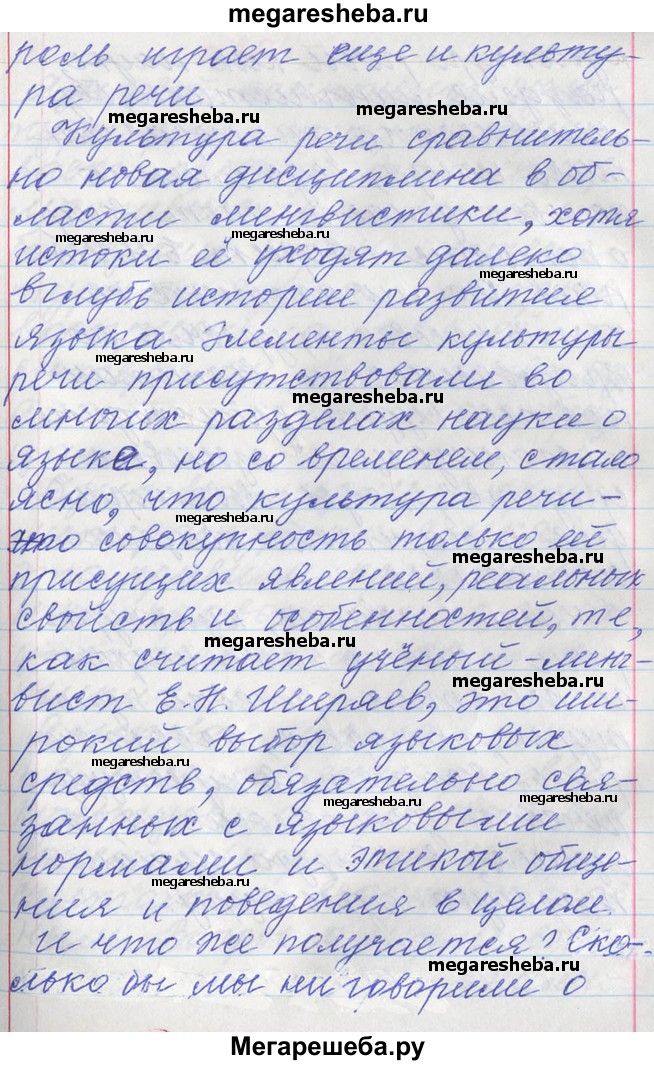 megaresheba.ru
роль играет еще и культу-
ра речи.
megaresheba.ru
megaresheba.ru
Культура речи сравнитель-
но новая дисциплина в об-
ласти лингвистики, хотя
megaresheba.ru
истоки её уходят далеко
megaresheba.ru
вглубь истории развития
языка Элементы культуры
megaresheba.ru
речи присутствовали во
megaresheba.ru
многих разделах науки о
языке, но со временем, стало
ясно, что культура речи -
megaresheba.ru
это совокупность только ей
megaresheba.ru
присущих явлений, реальных
свойств и особенностей, те,
megaresheba.ru
как считает учёный-линг-
megaresheba.ru
вист Е.Н. Ширяев, это ши-
рокий выбор языковых
megaresheba.ru
средств, обязательно свя-
megaresheba.ru
megaresheba.ru
занных с языковыми
нормами и этикой обще-
megaresheba.ru
ния и поведения в целом.
И что же получается? Ско-
megaresheba.ru
лько бы мы ни говорили о
Мегарешеба.ру